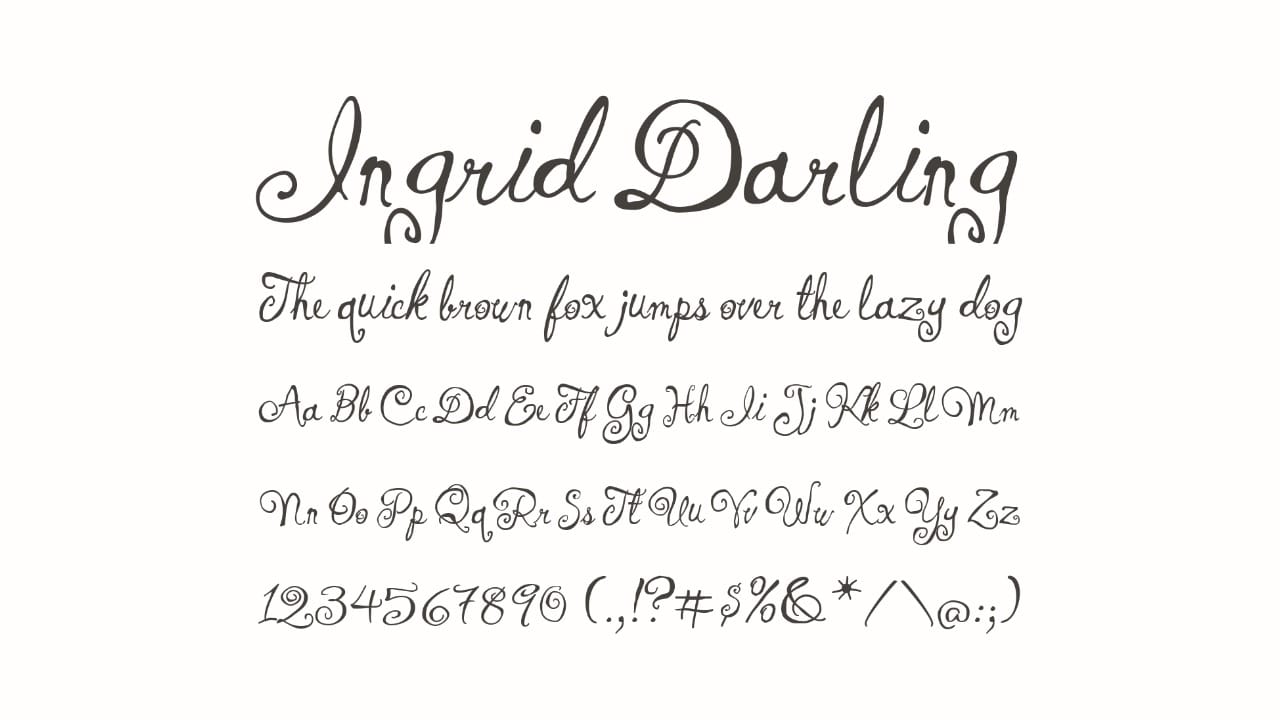 Ingrid Darling
The quick brown fox jumps over the lazy dog
Aa Bb Cc Dd Ee Ff Gg Hh Ii Jj Kk Ll Mm
Nn Oo Pp Qq Rr Ss Tt Uu Vv Ww Xx Yy Zz
1234567890 (.,!?#$%&*/\@:;)